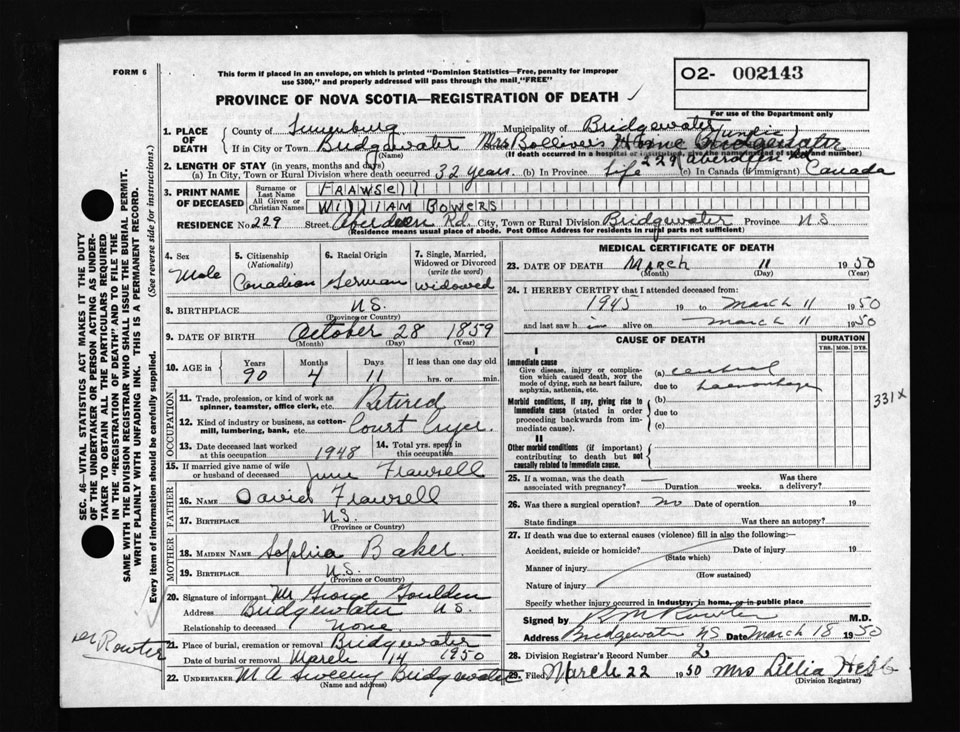 FORM 6
This form if placed in an envelope, on which is printed "Dominion Statistics—Free, penalty for improper
use $300," and properly addressed will pass through the mail, "FREE"
O2- 002143
PROVINCE OF NOVA SCOTIA—REGISTRATION OF DEATH ✓
For use of the Department only
1. PLACE OF DEATH
County of Lunenburg Municipality of Bridgewater
If in City or Town Bridgewater Mrs Bolliver's Home Bridgewater
(Name) (If death occurred in a hospital or institution, give the name instead of street and number)
229 Aberdeen Rd
2. LENGTH OF STAY (in years, months and days)
(a) In City, Town or Rural Division where death occurred 32 years. (b) In Province Life (c) In Canada (if immigrant) Canada
3. PRINT NAME OF DECEASED
Surname or Last Name FRAWSELL
All Given or Christian Names WILLIAM BOWERS
RESIDENCE No. 229 Street Aberdeen Rd. City, Town or Rural Division Bridgewater Province N.S
(Residence means usual place of abode. Post Office Address for residents in rural parts not sufficient)
4. Sex
Male
5. Citizenship (Nationality)
Canadian
6. Racial Origin
German
7. Single, Married, Widowed or Divorced (write the word)
widowed
8. BIRTHPLACE N.S.
(Province or Country)
9. DATE OF BIRTH October 28 1859
(Month) (Day) (Year)
10. AGE in Years Months Days If less than one day old
90 4 11 hrs. or min.
OCCUPATION
11. Trade, profession, or kind of work as spinner, teamster, office clerk, etc. Retired
12. Kind of industry or business, as cotton-mill, lumbering, bank, etc. Court Cryer.
13. Date deceased last worked at this occupation 1948
14. Total yrs. spent in this occupation
15. If married give name of wife or husband of deceased June Frawsell
FATHER
16. NAME David Frawsell
17. BIRTHPLACE N.S.
(Province or Country)
MOTHER
18. MAIDEN NAME Sophia Baker.
19. BIRTHPLACE N.S.
(Province or Country)
20. Signature of informant Mr George Goulden
Address Bridgewater N.S.
Relationship to deceased None
21. Place of burial, cremation or removal Bridgewater
Date of burial or removal March 14 1950
22. UNDERTAKER M A Sweeny Bridgewater
(Name and address)
MEDICAL CERTIFICATE OF DEATH
23. DATE OF DEATH MARCH 11 1950
(Month) (Day) (Year)
24. I HEREBY CERTIFY that I attended deceased from:
1945 19 to March 11 1950
and last saw him alive on March 11 1950
CAUSE OF DEATH
DURATION
YRS. MOS. DYS.
I
Immediate cause
Give disease, injury or complication which caused death, not the mode of dying, such as heart failure, asphyxia, asthenia, etc.
(a) cerebral
due to haemorrhage
331 X
Morbid conditions, if any, giving rise to immediate cause (stated in order proceeding backwards from immediate cause).
(b)
due to
(c)
II
Other morbid conditions (if important) contributing to death but not causally related to immediate cause.
25. If a woman, was the death associated with pregnancy? — Duration weeks. Was there a delivery?
26. Was there a surgical operation? no Date of operation 19
State findings Was there an autopsy?
27. If death was due to external causes (violence) fill in also the following:—
Accident, suicide or homicide? Date of injury 19
(State which)
Manner of injury
(How sustained)
Nature of injury
Specify whether injury occurred in industry, in home, or in public place
Signed by M.D.
Address Bridgewater NS Date March 18 1950
28. Division Registrar's Record Number 2
29. Filed March 22 1950 Mrs Lillia Hebb
(Division Registrar)
SEC. 46—VITAL STATISTICS ACT MAKES IT THE DUTY
OF THE UNDERTAKER OR PERSON ACTING AS UNDER-
TAKER TO OBTAIN ALL THE PARTICULARS REQUIRED
IN THE "REGISTRATION OF DEATH" AND TO FILE THE
SAME WITH THE DIVISION REGISTRAR WHO SHALL ISSUE THE BURIAL PERMIT.
WRITE PLAINLY WITH UNFADING INK. THIS IS A PERMANENT RECORD.
Every item of information should be carefully supplied. (See reverse side for instructions.)